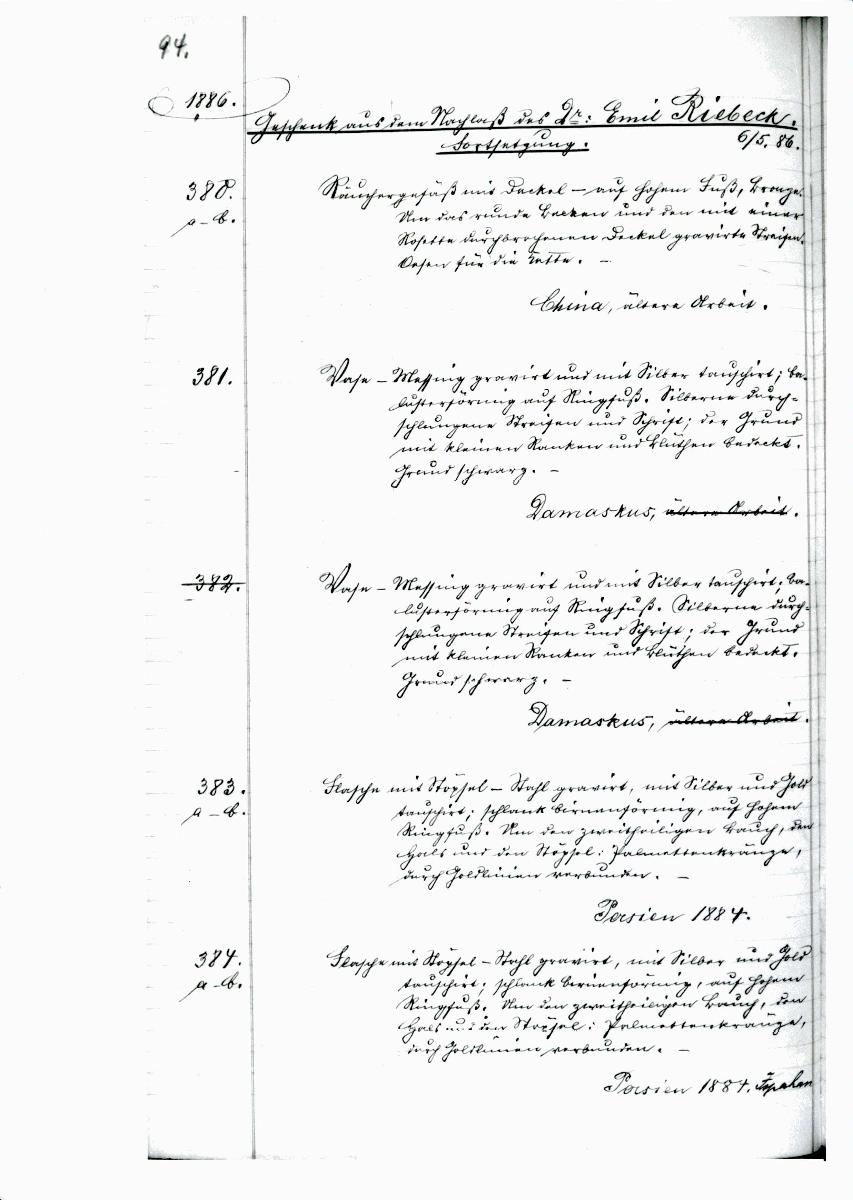 94.
1886.
Geschenk aus dem Nachlaß des Dr: Emil Riebeck.
Fortsetzung.
6/5. 86.
380.
a-b.
Räuchergefäß mit Deckel – auf hohem Fuß, Bronze.
Um das runde Becken und den mit einer
Rosette durchbrochenen Deckel gravirte Streifen.
Oesen für die Kette. –
China, ältere Arbeit.
381.
Vase – Messing gravirt und mit Silber tauschirt; ba-
lusterförmig auf Ringfuß. Silberne durch-
schlungene Streifen und Schrift; der Grund
mit kleinen Ranken und Blüthen bedeckt.
Grund schwarz. –
Damaskus, ältere Arbeit.
382.
Vase – Messing gravirt und mit Silber tauschirt; ba-
lusterförmig auf Ringfuß. Silberne durch-
schlungene Streifen und Schrift; der Grund
mit kleinen Ranken und Blüthen bedeckt.
Grund schwarz. –
Damaskus, ältere Arbeit.
383.
a-b.
Flasche mit Stöpsel – Stahl gravirt, mit Silber und Gold
tauschirt; schlank birnenförmig, auf hohem
Ringfuß. Um den zweitheiligen Bauch, den
Hals und den Stöpsel: Palmettenkränze,
durch Goldlinien verbunden. –
Persien 1884.
384.
a-b.
Flasche mit Stöpsel – Stahl gravirt, mit Silber und Gold
tauschirt; schlank birnenförmig, auf hohem
Ringfuß. Um den zweitheiligen Bauch, den
Hals und den Stöpsel: Palmettenkränze,
durch Goldlinien verbunden. –
Persien 1884. Ispahan